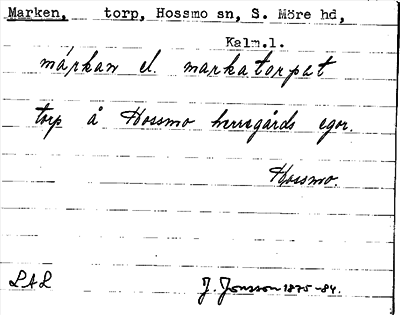 Marken, torp, Hossmo sn, S. Möre hd,
Kalm.l.
márkan el. markatorpat
torp å Hossmo herregårds egor.
Hossmo.
LAL J. Jonsson 1875-84.